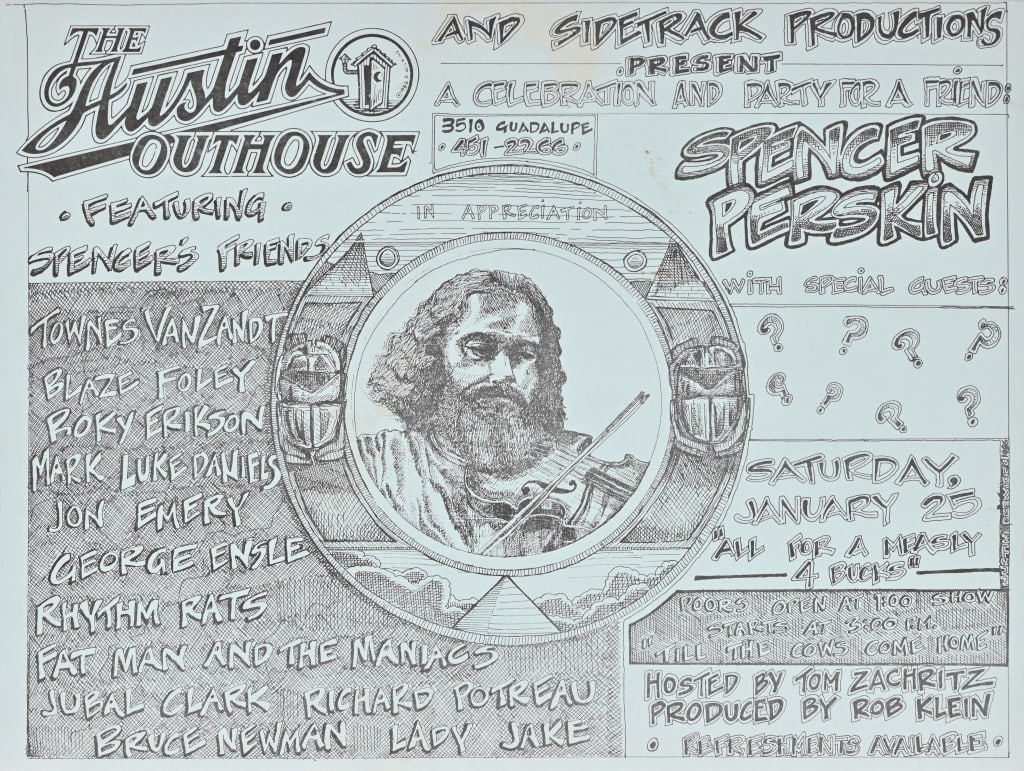 THE
Austin
OUTHOUSE
AND SIDETRACK PRODUCTIONS
PRESENT
A CELEBRATION AND PARTY FOR A FRIEND:
3510 GUADALUPE
• 451-2266 •
SPENCER
PERSKIN
• FEATURING •
SPENCER'S FRIENDS
IN APPRECIATION
WITH SPECIAL GUESTS:
? ? ? ?
? ? ? ?
TOWNES VANZANDT
BLAZE FOLEY
ROKY ERIKSON
MARK LUKE DANIELS
JON EMERY
GEORGE ENSLE
RHYTHM RATS
FAT MAN AND THE MANIACS
JUBAL CLARK RICHARD POTREAU
BRUCE NEWMAN LADY JAKE
SATURDAY,
JANUARY 25
"ALL FOR A MEASLY
4 BUCKS"
DOORS OPEN AT 1:00 SHOW
STARTS AT 3:00 P.M.
"TILL THE COWS COME HOME"
HOSTED BY TOM ZACHRITZ
PRODUCED BY ROB KLEIN
• REFRESHMENTS AVAILABLE •